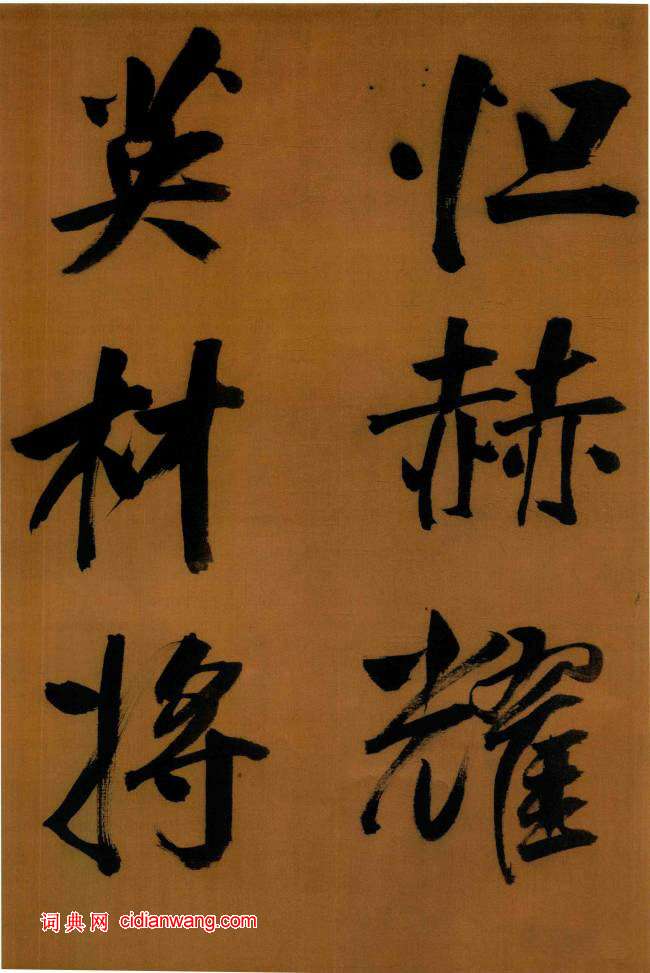 怛赫耀
英材将
词典网 cidianwang.com